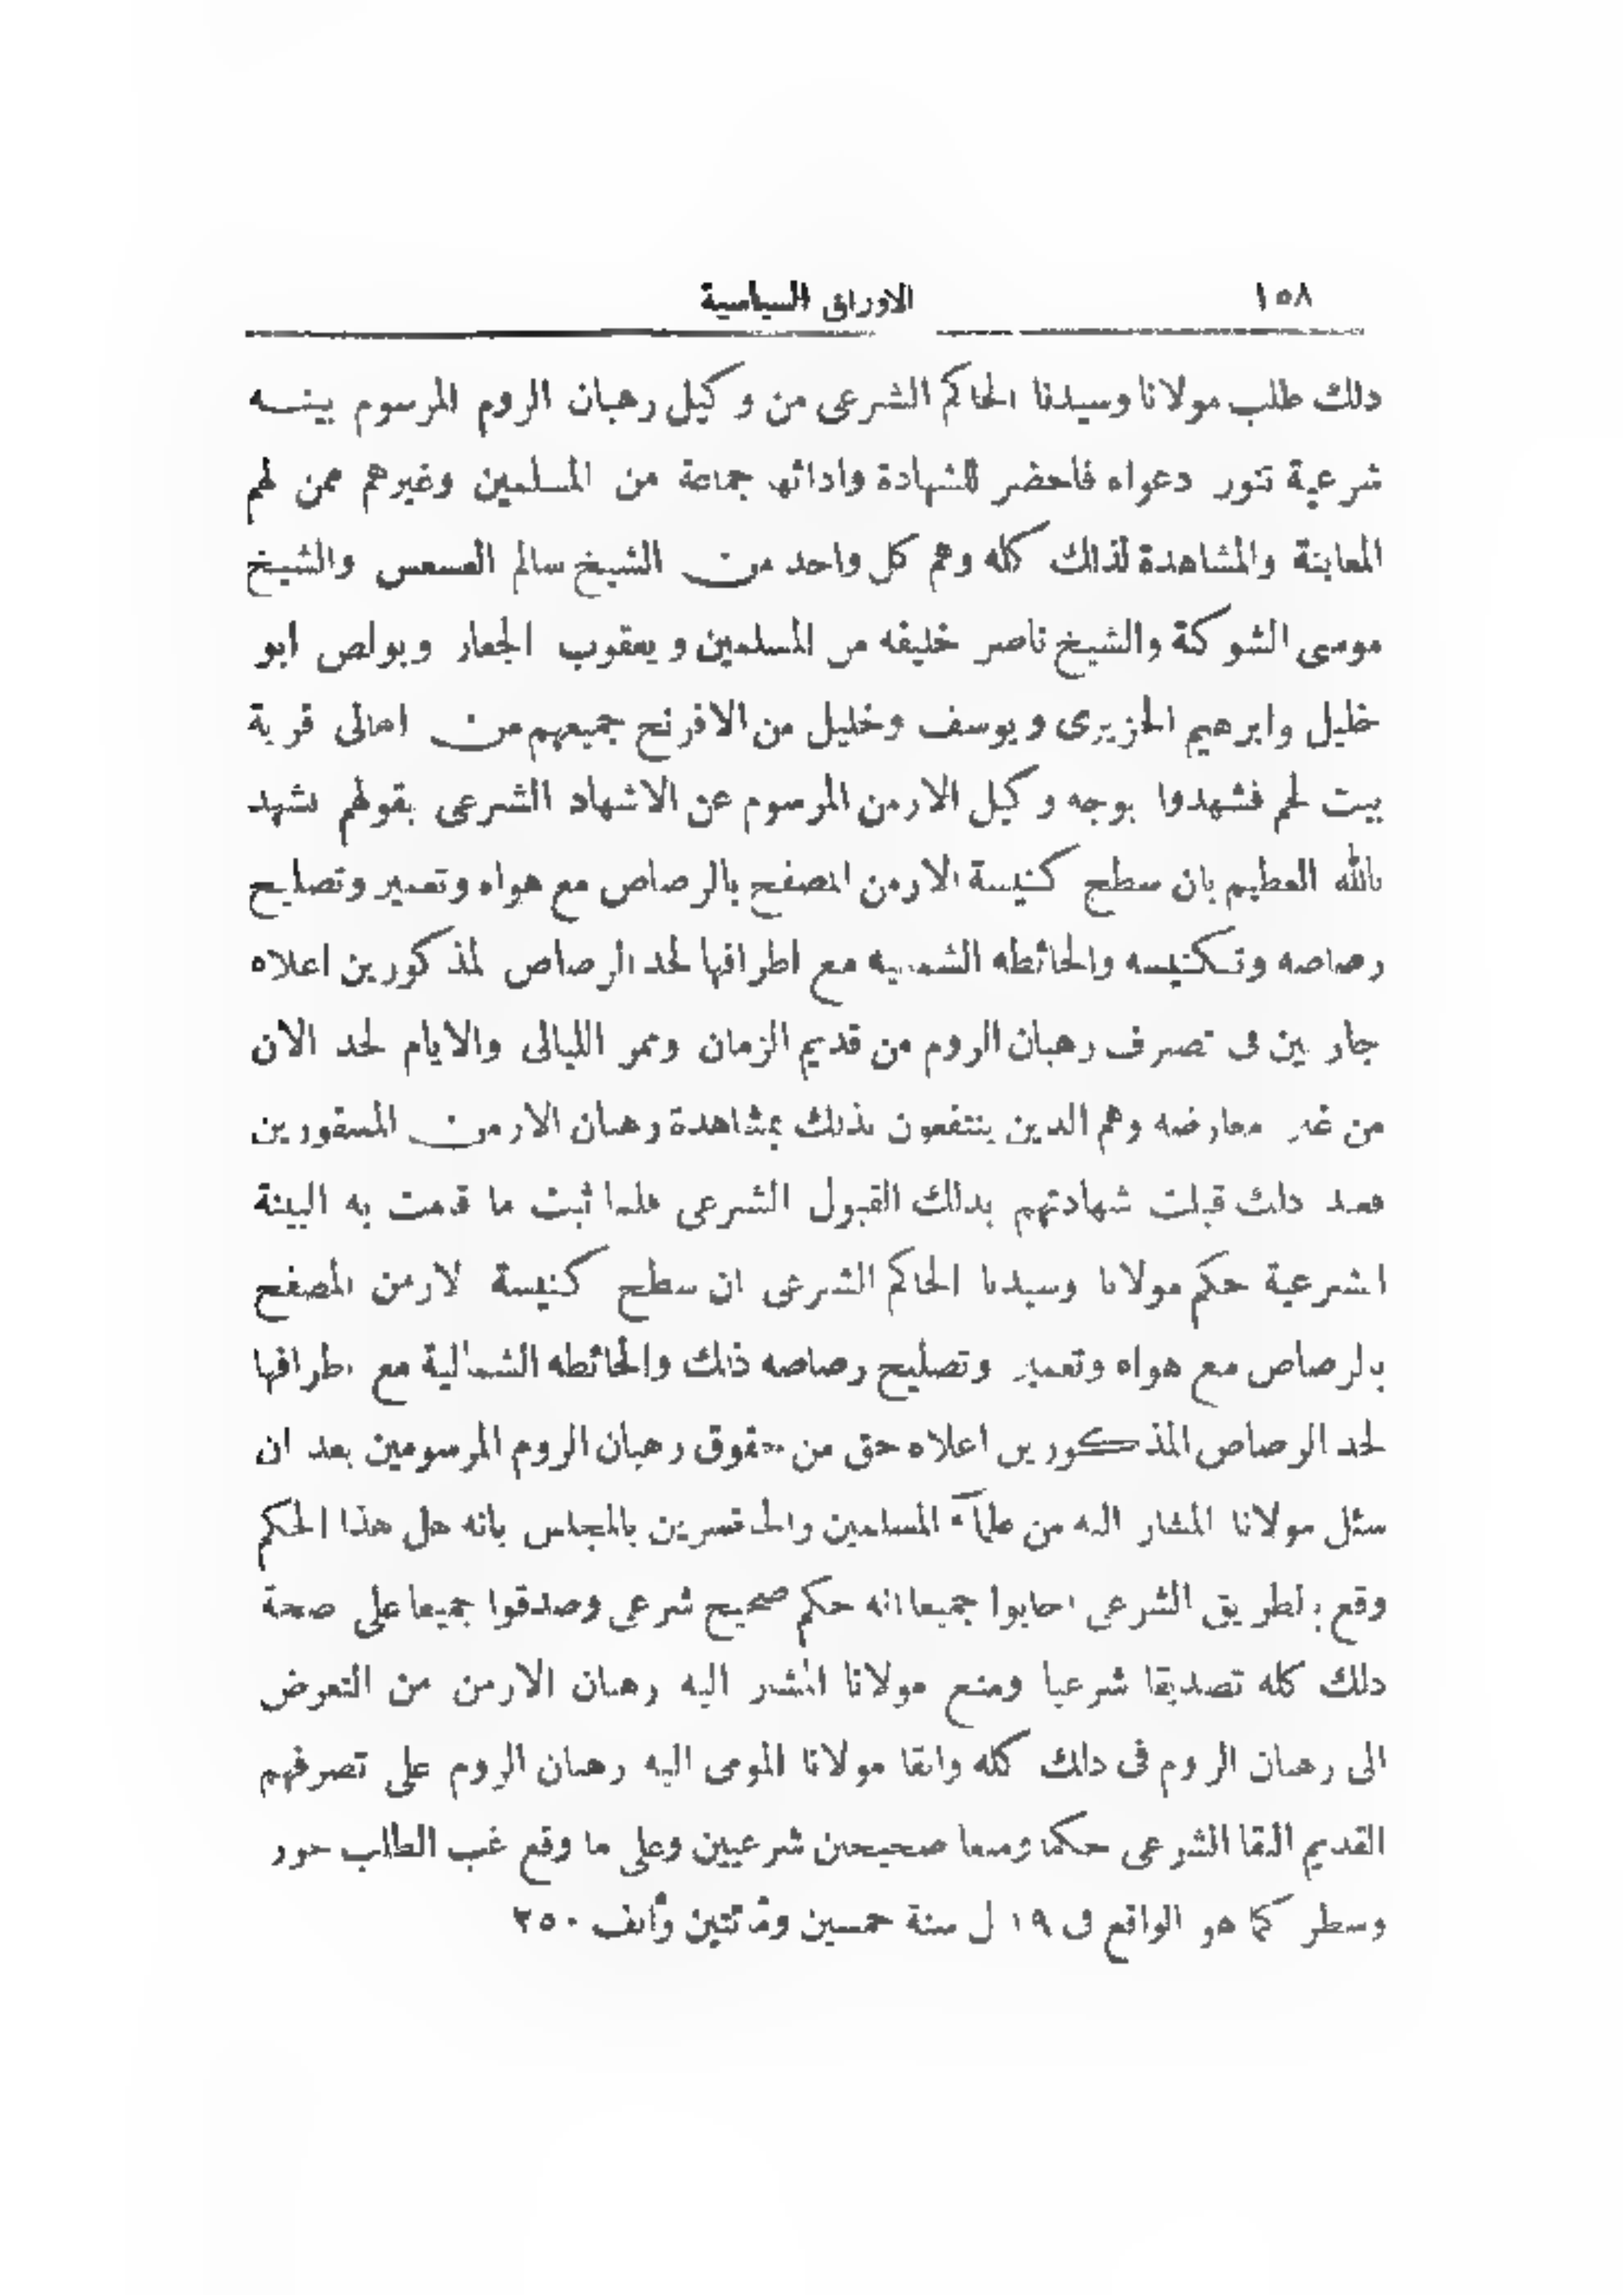 ١٥٨ الاوراق السياسية
ذلك طلب مولانا وسيدنا الحاكم الشرعى من وكيل رهبان الروم المرسوم بينــه
شرعية تنور دعواه فاحضر للشهادة وادائها جماعة من المسلمين وغيرهم ممن لهم
المعاينة والمشاهدة لذلك كله وهم كل واحد من الشيخ سالم العسعس والشيخ
موسى الشوكة والشيخ ناصر خليفه من المسلمين ويعقوب الجعار وبولص ابو
خليل وابرهيم الحزيرى ويوسف وخليل من الافرنج جميعهم من اهالى قرية
بيت لحم فشهدوا بوجه وكيل الارمن المرسوم عن الاشهاد الشرعى بقولهم نشهد
بالله العظيم بان سطح كنيسة الارمن المصفح بالرصاص مع هواه وتعمير وتصليح
رصاصه وتكنيسه والحائطه الشماليه مع اطرافها لحد الرصاص المذكورين اعلاه
جاريين فى تصرف رهبان الروم من قديم الزمان وممر الليالى والايام لحد الان
من غير معارضه وهم الذين ينتفعون بذلك بمشاهدة رهبان الارمن المسفورين
فعند ذلك قبلت شهادتهم بذلك القبول الشرعى فلما ثبت ما قامت به البينة
الشرعية حكم مولانا وسيدنا الحاكم الشرعى ان سطح كنيسة الارمن المصفح
بالرصاص مع هواه وتعمير وتصليح رصاصه ذلك والحائطه الشمالية مع اطرافها
لحد الرصاص المذكورين اعلاه حق من حقوق رهبان الروم المرسومين بعد ان
سئل مولانا المشار اليه من علمآء المسلمين والحاضرين بالمجلس بانه هل هذا الحكم
وقع بالطريق الشرعى اجابوا جميعا انه حكم صحيح شرعى وصدقوا جميعا على صحة
ذلك كله تصديقا شرعيا ومنع مولانا المشار اليه رهبان الارمن من التعرض
الى رهبان الروم فى ذلك كله وابقا مولانا المومى اليه رهبان الروم على تصرفهم
القديم البقا الشرعى حكما ومنعا صحيحين شرعيين وعلى ما وقع غب الطلب حرر
وسطر كما هو الواقع فى ١٩ ل سنة خمسين ومأتين وألف ٢٥٠